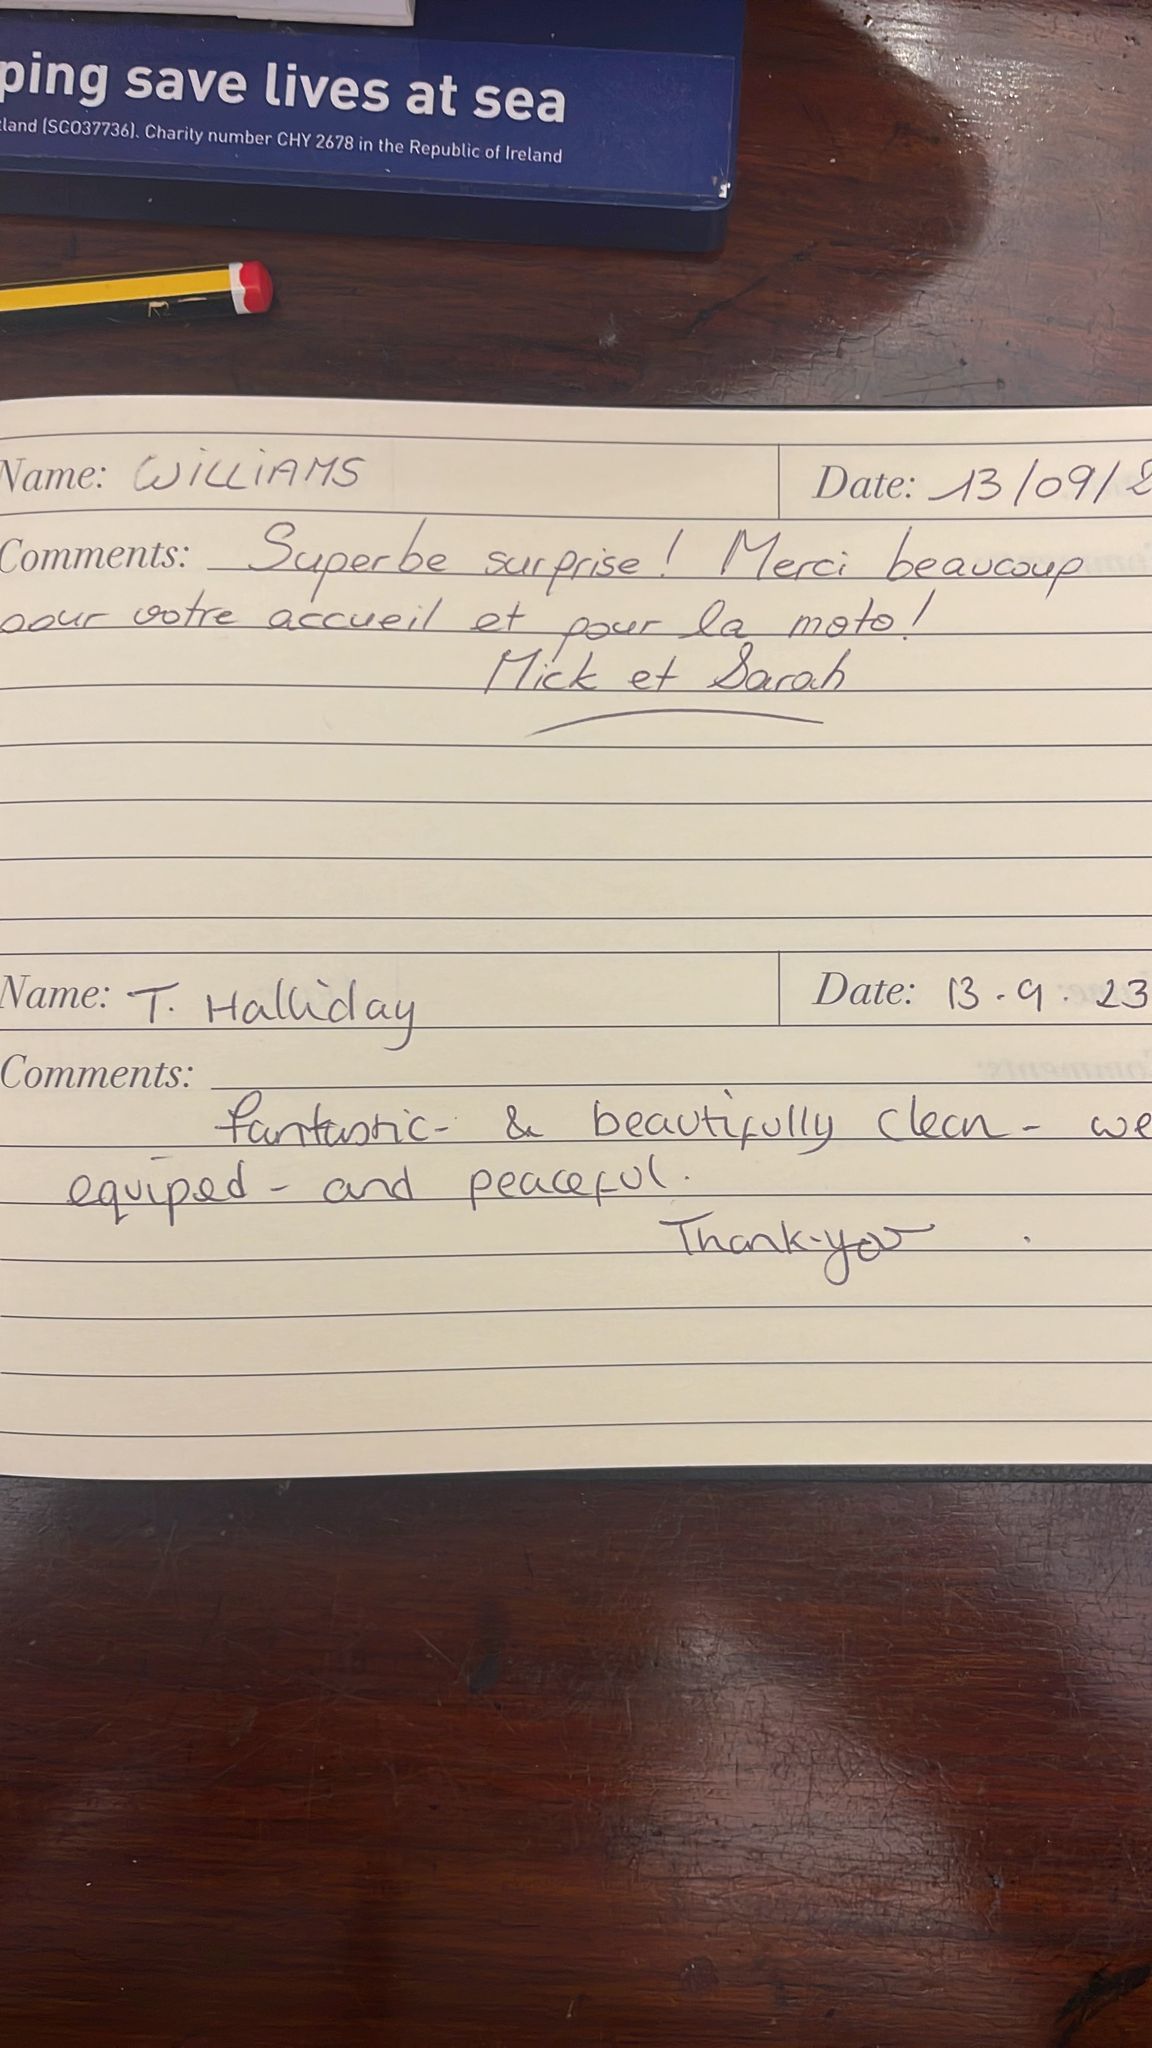 ping save lives at sea
tland (SC037736). Charity number CHY 2678 in the Republic of Ireland
Name: WILLIAMS Date: 13/09/2
Comments: Superbe surprise! Merci beaucoup
pour votre accueil et pour la moto!
Mick et Sarah
Name: T. Halliday Date: 13.9.23
Comments:
fantastic - & beautifully clean - we
equiped - and peaceful.
Thank-you